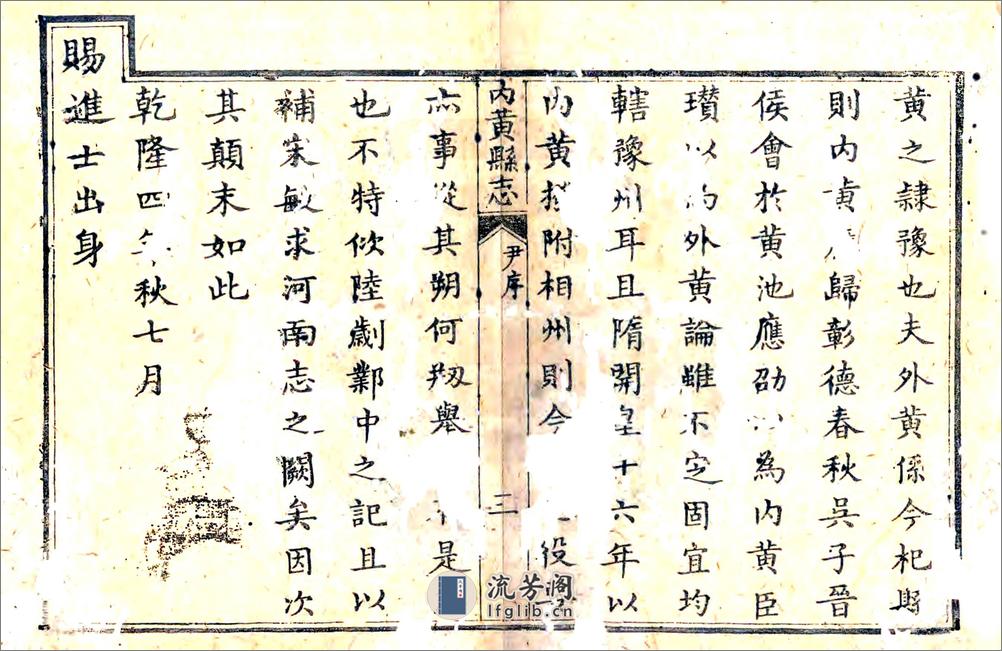 黄之隷豫也夫外黄係今杞縣
則内黄歸彰德春秋吳子晉
侯會於黄池應劭為内黄臣
瓚以為外黄論雖不定固宜均
轄豫州耳且隋開皇十六年以
内黄附相州則今役
内黄縣志
尹序
二
事從其朔何剏舉是
也不特倣陸劌鄴中之記且以
補宋敏求河南志之闕矣因次
其顛末如此
乾隆四年秋七月
賜進士出身
流芳阁
lfglib.cn